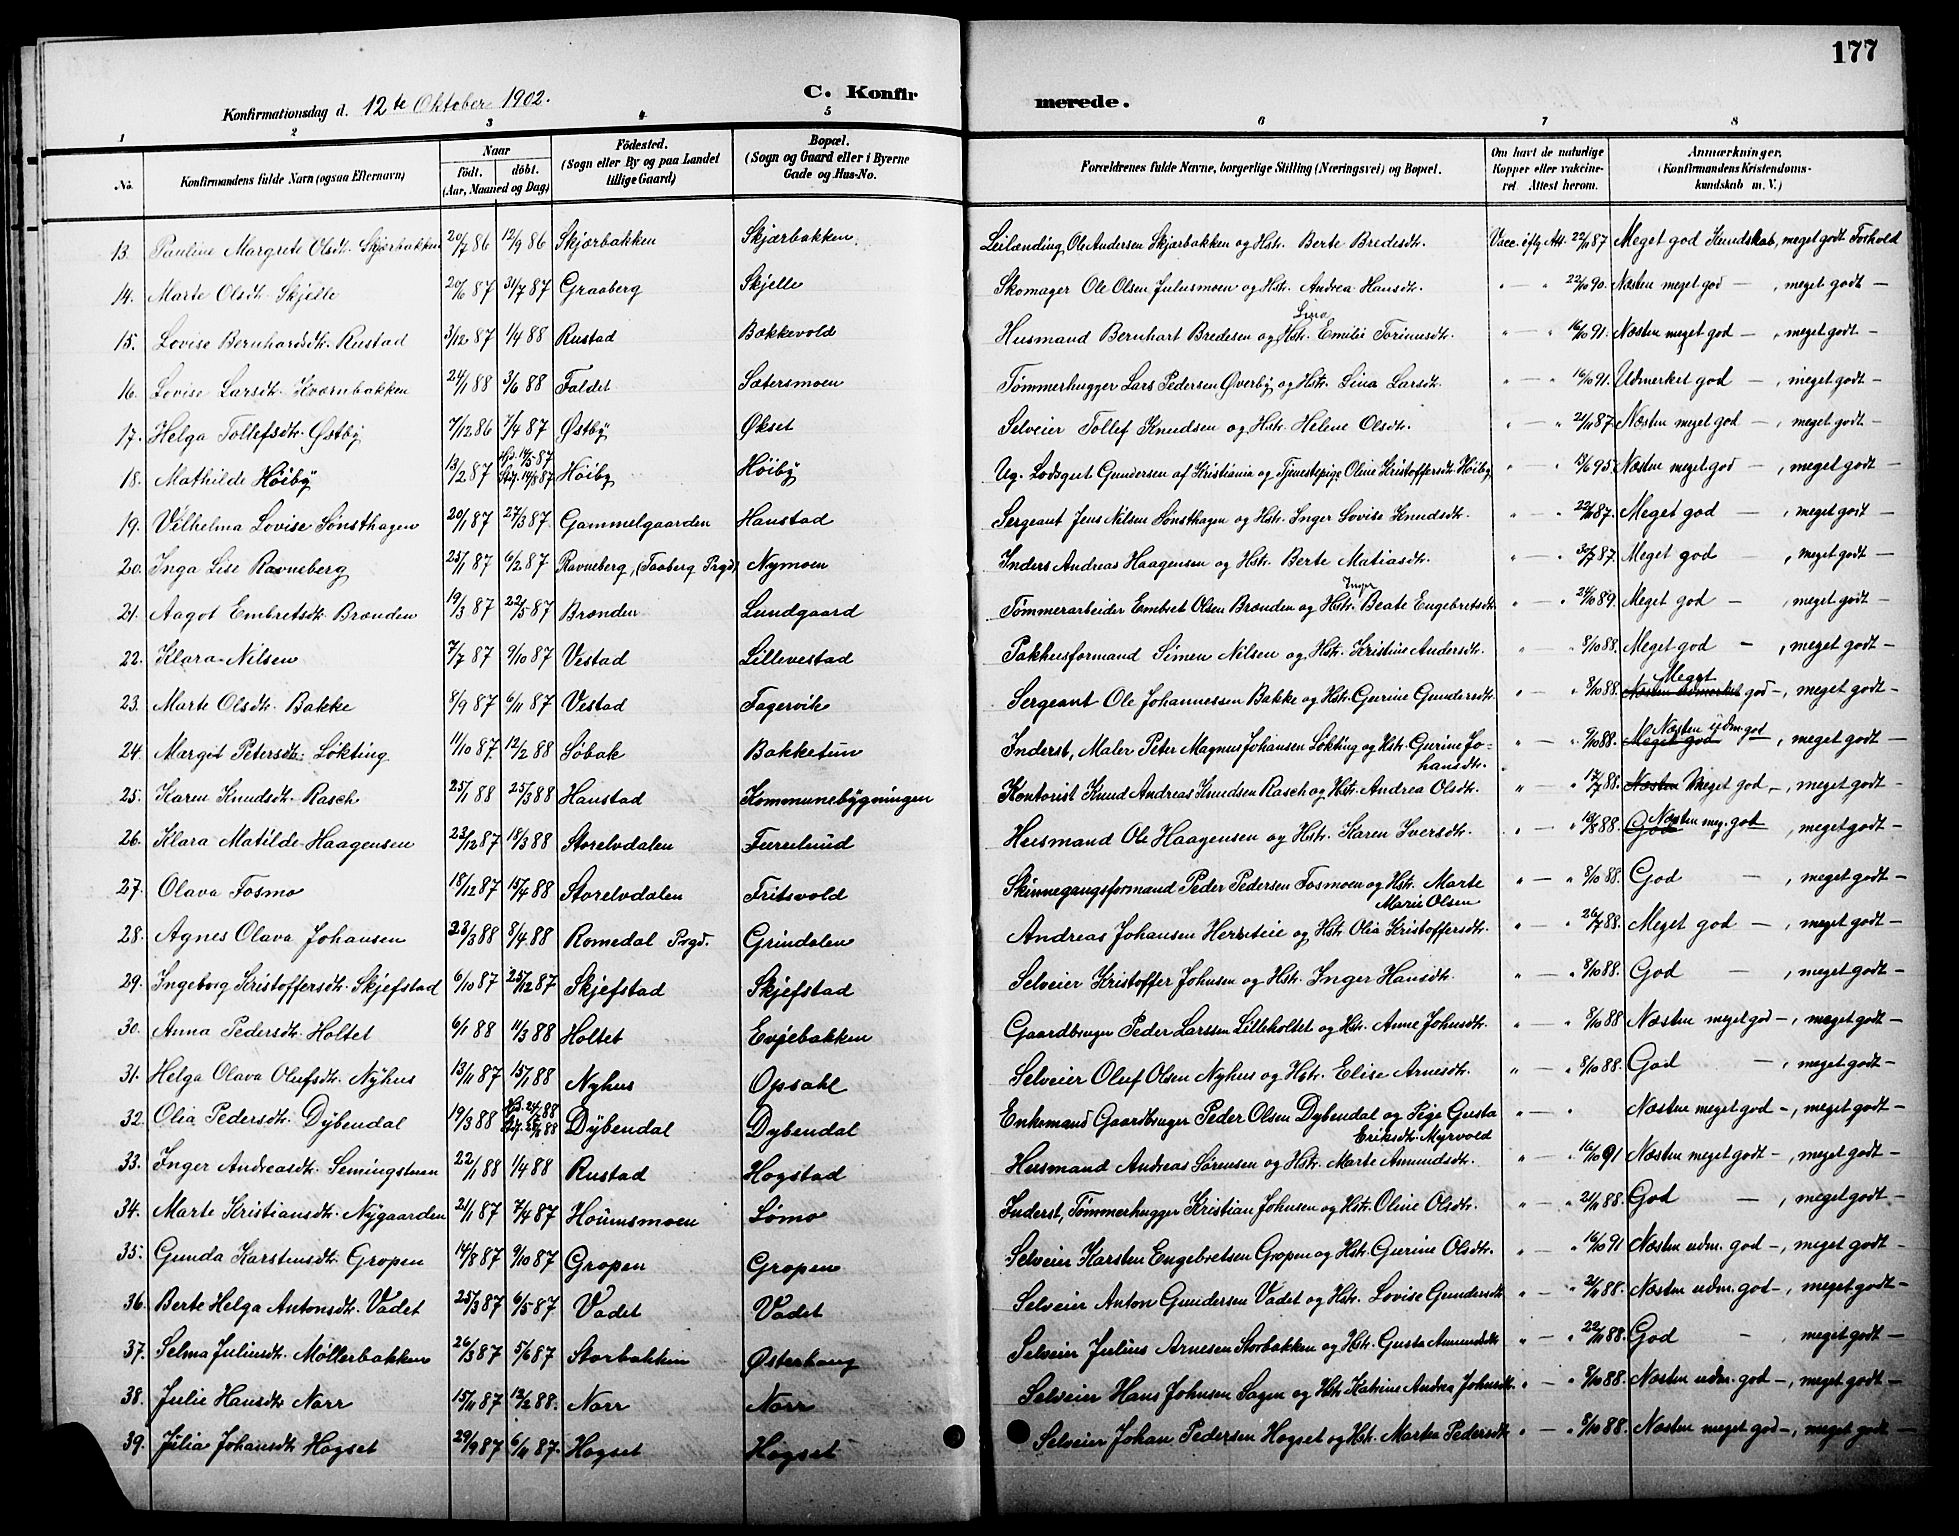 177
Konfirmationsdag d. 12te Oktober 1902.
C. Konfirmerede.
1 2 3 4 5 6 7 8
No.
Konfirmandens fulde Navn (ogsaa Efternavn)
Naar
født. døbt.
(Aar, Maaned og Dag)
Födested.
(Sogn eller By og paa Landet
lillige Gaard)
Bopæl.
(Sogn og Gaard eller i Byerne
Gade og Hus-No.
Forældrenes fulde Navne, borgerlige Stilling (Næringsvei) og Bopæl.
Om havt de naturlige
Kopper eller vakcine-
ret Attest herom.
Anmærkninger.
(Konfirmandens Kristendoms-
kundskab m. V.)
13. Pauline Margrete Olsdtr. Skjærbakken 20/7 86 12/9 86 Skjærbakken Skjærbakken. Leilænding Ole Andersen Skjærbakken og Hstr. Berte Bredesdtr. Vacc. øflg Att. 22/11 87 Meget god Kundskab, meget godt Forhold
14. Marte Olsdtr. Skjelle 20/6 87 31/7 87 Graaberg Skjelle Skomager Ole Olsen Juliusmoen og Hstr. Andrea Hansdtr. " — " 22/10 90. Næsten meget god — , meget godt —
15. Lovise Bernhardsdtr. Rustad 3/12 87 1/4 88 Rustad Bakkevold Husmand Bernhart Bredesen og Hstr. Lina Emilie Torinusdtr. " — " 16/10 91. Næsten meget god — , meget godt —
16. Lovise Larsdtr. Kværnbakken 24/1 88 3/6 88 Faldet Sætersmoen Tømmerhugger Lars Pedersen Øverby og Hstr. Lina Larsdtr. " — " 16/10 91. Udmerket god — , meget godt —
17. Helga Tollefsdtr. Østby 7/12 86 7/4 87 Østby Økset Selveier Tollef Knudsen og Hstr. Helene Olsdtr. " — " 21/11 87. Næsten meget god — , meget godt —
18. Mathilde Høiby 13/2 87 Høiby Høiby Ug. Lodsgut Gundersen af Kristiania og Tjenestepige Oline Kristoffersdtr. Høiby " — " 18/6 95. Næsten meget god — , meget godt —
19. Vilhelma Lovise Sønsthagen 20/1 87 27/3 87. Gammelgaarden Hanstad Sergeant Jens Nilsen Sønsthagen og Hstr. Inger Lovise Knudsdtr. " — " 22/11 87. Meget god — , meget godt —
20. Inga Lise Ravneberg 25/1 87 6/2 87 Ravneberg, (Faaberg Prgd) Nymoen Inderst Andreas Haagensen og Hstr. Berte Matiasdtr. " — " 30/7 87. Meget god — , meget godt —
21. Aagot Embretsdtr. Brænden 19/3 87 22/5 87 Brænden Lundgaard Tømmerarbeider Embret Olsen Brænden og Hstr. Inger Beate Engebretsdtr. " — " 24/10 89. Meget god — , meget godt —
22. Klara Nilsen 7/7 87 9/10 87 Vestad Lillevestad Pakhusformand Simen Nilsen og Hstr. Kristine Andersdtr. " — " 8/10 88. Meget god — , meget godt —
23. Marte Olsdtr. Bakke 8/9 87 6/11 87 Vestad Fagervik Sergeant Ole Johannessen Bakke og Hstr. Gurine Gundersdtr. " — " 8/10 88. Næsten udmerket Meget god —, meget godt —
24. Margit Petersdtr. Løkting 11/10 87. 12/2 88 Søbak Bakketun Inderst, Maler Peter Magnus Johansen Løkting og Hstr. Gurine Jo-
hansdtr. " — " 9/10 88. Meget god Næsten udm. god —, meget godt —
25. Karen Knudsdtr. Rasch 25/1 88 25/3 88 Hanstad Kommunebygningen Kontorist Knud Andreas Knudsen Rasch og Hstr. Andrea Olsdtr. " — " 17/7 88. Næsten Meget god —, meget godt —
26. Klara Matilde Haagensen 23/12 87 18/3 88 Storelvdalen Furrulund Husmand Ole Haagensen og Hstr. Karen Iversdtr. " — " 19/8 88. God Næsten meg. god , meget godt —
27. Olava Fosmo 18/12 87 15/4 88 Storelvdalen Fritsvold Skinnegangsformand Peder Pedersen Fosmoen og Hstr. Marte
Marie Olsen " — " 8/10 88. God — , meget godt —
28. Agnes Olava Johansen 23/3 88 8/4 88 Romedal Prgd. Grindalen Andreas Johansen Hersteie og Hstr. Olia Kristoffersdtr. " — " 26/7 88. Meget god — , meget godt —
29. Ingeborg Kristoffersdtr. Skjefstad 6/10 87 25/12 87 Skjefstad Skjefstad Selveier Kristoffer Johnsen og Hstr. Inger Hansdtr. " — " 8/10 88. God — , meget godt —
30. Anna Pedersdtr. Holtet 6/1 88 11/3 88 Holtet Evjebakken Gaardbruger Peder Larssen Lilleholtet og Hstr. Anne Johnsdtr. " — " 8/10 88 Næsten meget god —, meget godt —
31. Helga Olava Olufsdtr. Nyhus 13/11 87 15/1 88 Nyhus Opsahl Selveier Oluf Olsen Nyhus og Hstr. Elise Arnesdtr. " — " 8/10 88. God — , meget godt —
32. Olia Pedersdtr. Dybendal 19/3 88 Dybendal Dybendal Enkemand Gaardbruger Peder Olsen Dybendal og Pige Gusta
Eriksdtr. Myrvold " — " Næsten meget god —, meget godt —
33. Inger Andreasdtr. Semingstuen 22/1 88 1/4 88 Rustad Hogstad Husmand Andreas Sørensen og Hstr. Marte Amundsdtr. " — " 16/10 91 Næsten meget godt —, meget godt —
34. Marte Kristiansdtr. Nygaarden 21/1 87 7/4 87 Hournsmoen Lømo Inderst, Tømmerhugger Kristian Johnsen og Hstr. Oline Olsdtr. " — " 21/11 88. God — , meget godt —
35. Gunda Karstensdtr. Gropen 14/8 87 9/10 87 Gropen Gropen Selveier Karsten Engebretsen Gropen og Hstr. Gurine Olsdtr. " — " 16/10 91 Næsten udm. god —, meget godt —
36. Berte Helga Antonsdtr. Vadet 25/3 87 6/5 87 Vadet Vadet Selveier Anton Gundersen Vadet og Hstr. Lovise Gundersdtr " — " 21/11 88. Næsten udm. god —, meget godt —
37. Selma Juliusdtr. Møllerbakken 26/3 87 5/6 87 Storbakken Østerhaug Selveier Julius Arnesen Storbakken og Hstr. Gusta Amundsdtr " — " 22/11 88. God — , meget godt —
38. Julie Hansdtr. Norr 15/11 87 12/2 88. Norr Norr Selveier Hans Johnsen Sagen og Hstr. Katrine Andrea Johnsdtr. " — " 8/10 88. Næsten udm. god —, meget godt —
39. Julia Johansdtr. Hogset 29/9 87 6/11 87. Hogset Hogset Selveier Johan Pedersen Hogset og Hstr. Martea Pedersdtr " — " 8/10 88. Næsten meget god —, meget godt